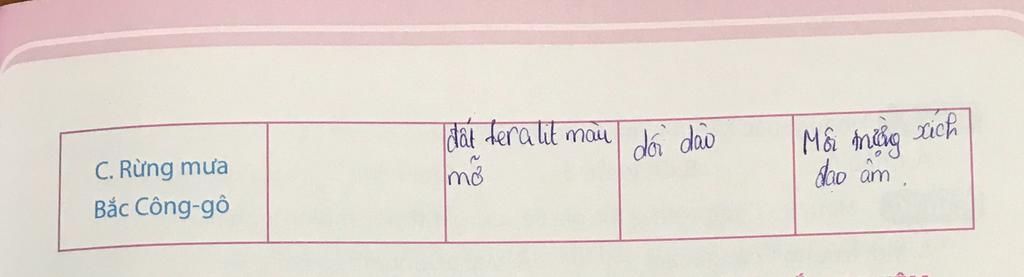 C. Rừng mưa
Bắc Công-gô
đất feralit màu
mỡ
dồi dào
Môi trường xích
đạo ẩm.